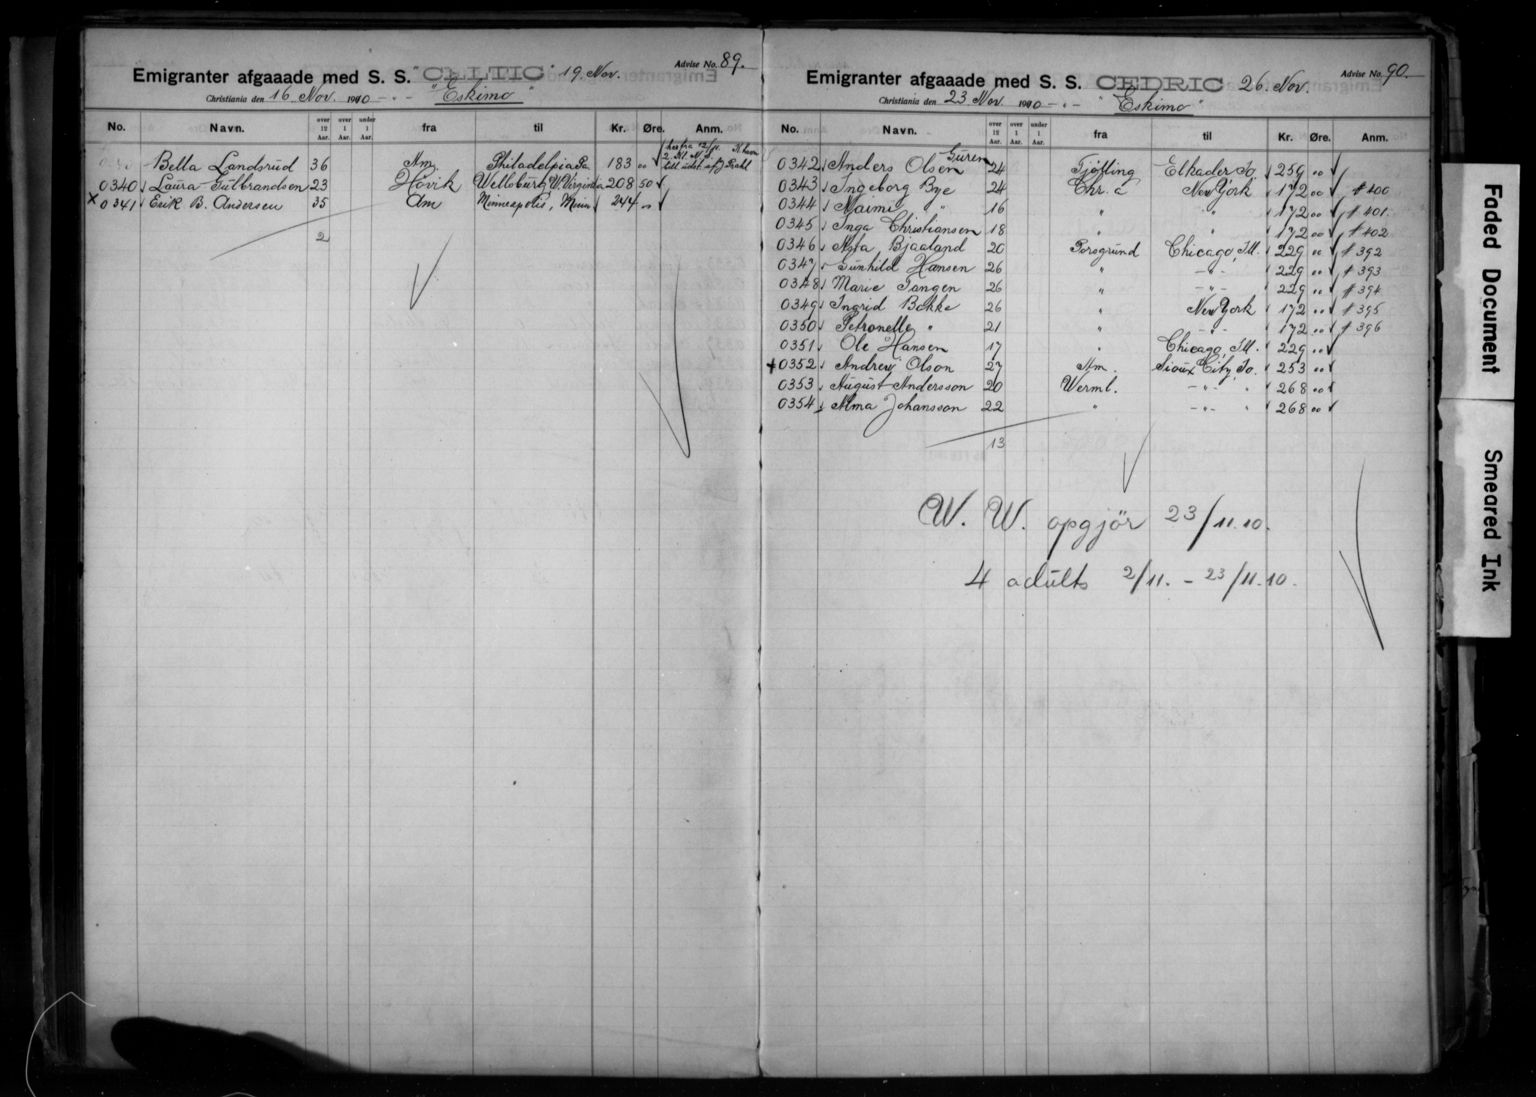 Advise No. 89.
Emigranter afgaaade med S. S. "CELTIC" 19. Nov.
Christiania den 16 Nov. 1910 - " - "Eskimo"
No. Navn. over 12 Aar. over 1 Aar. under 1 Aar. fra til Kr. Øre. Anm.
Bella Landsrud 36 Am Philadelpia Pa 183 00
0340 Laura Gulbrandsen 23 Hövik Wellsburg W. Virginia 208 50
x 0341 Erik B. Andersen 35 Am Minneapolis, Minn 244 00
2
Advise No. 90.
Emigranter afgaaade med S. S. CEDRIC 26. Nov.
Christiania den 23 Nov 1910 - " - "Eskimo"
No. Navn. over 12 Aar. over 1 Aar. under 1 Aar. fra til Kr. Øre. Anm.
0342 Anders Olsen Guren 24 Tjötling Elkader Io. 259 00
0343 Ingeborg Bye 24 Chr. a New York 172 00 # 400
0344 Maimi " 16 " " 172 00 # 401
0345 Inga Christiansen 18 " " 172 00 # 402
0346 Asta Bjaaland 20 Porsgrund Chicago, Ill. 229 00 # 392
0347 Gunhild Hansen 26 " - " - 229 00 # 393
0348 Marie Tangen 26 " - " - 229 00 # 394
0349 Ingrid Bakke 26 " New York 172 00 # 395
0350 Petronelle " 21 " - " - 172 00 # 396
0351 Ole Hansen 17 " Chicago, Ill. 229 00
+ 0352 Andrew Olson 27 Am. Sioux City, Io. 253 00
0353 August Andersson 20 Werml. - " - " 268 00
0354 Alma Johansson 22 " - " - " 268 00
13
W. W. opgjör 23/11.10.
4 adults 2/11. - 23/11.10.
Faded Document
Smeared Ink